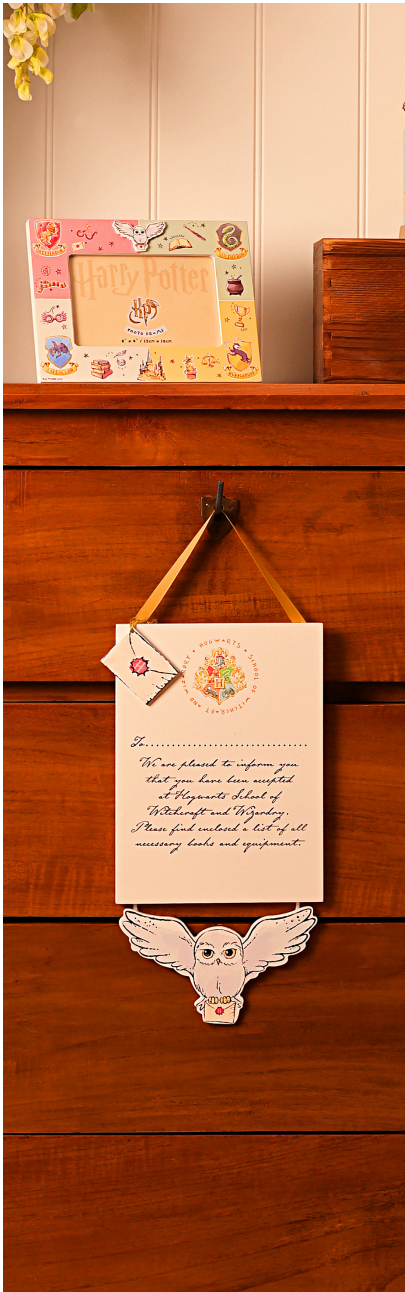 Harry Potter
HP
PHOTO FRAME
6" x 4" / 15cm x 10cm
HOGWARTS • SCHOOL OF WITCHCRAFT AND WIZARDRY •
To................................
We are pleased to inform you
that you have been accepted
at Hogwarts School of
Witchcraft and Wizardry.
Please find enclosed a list of all
necessary books and equipment.